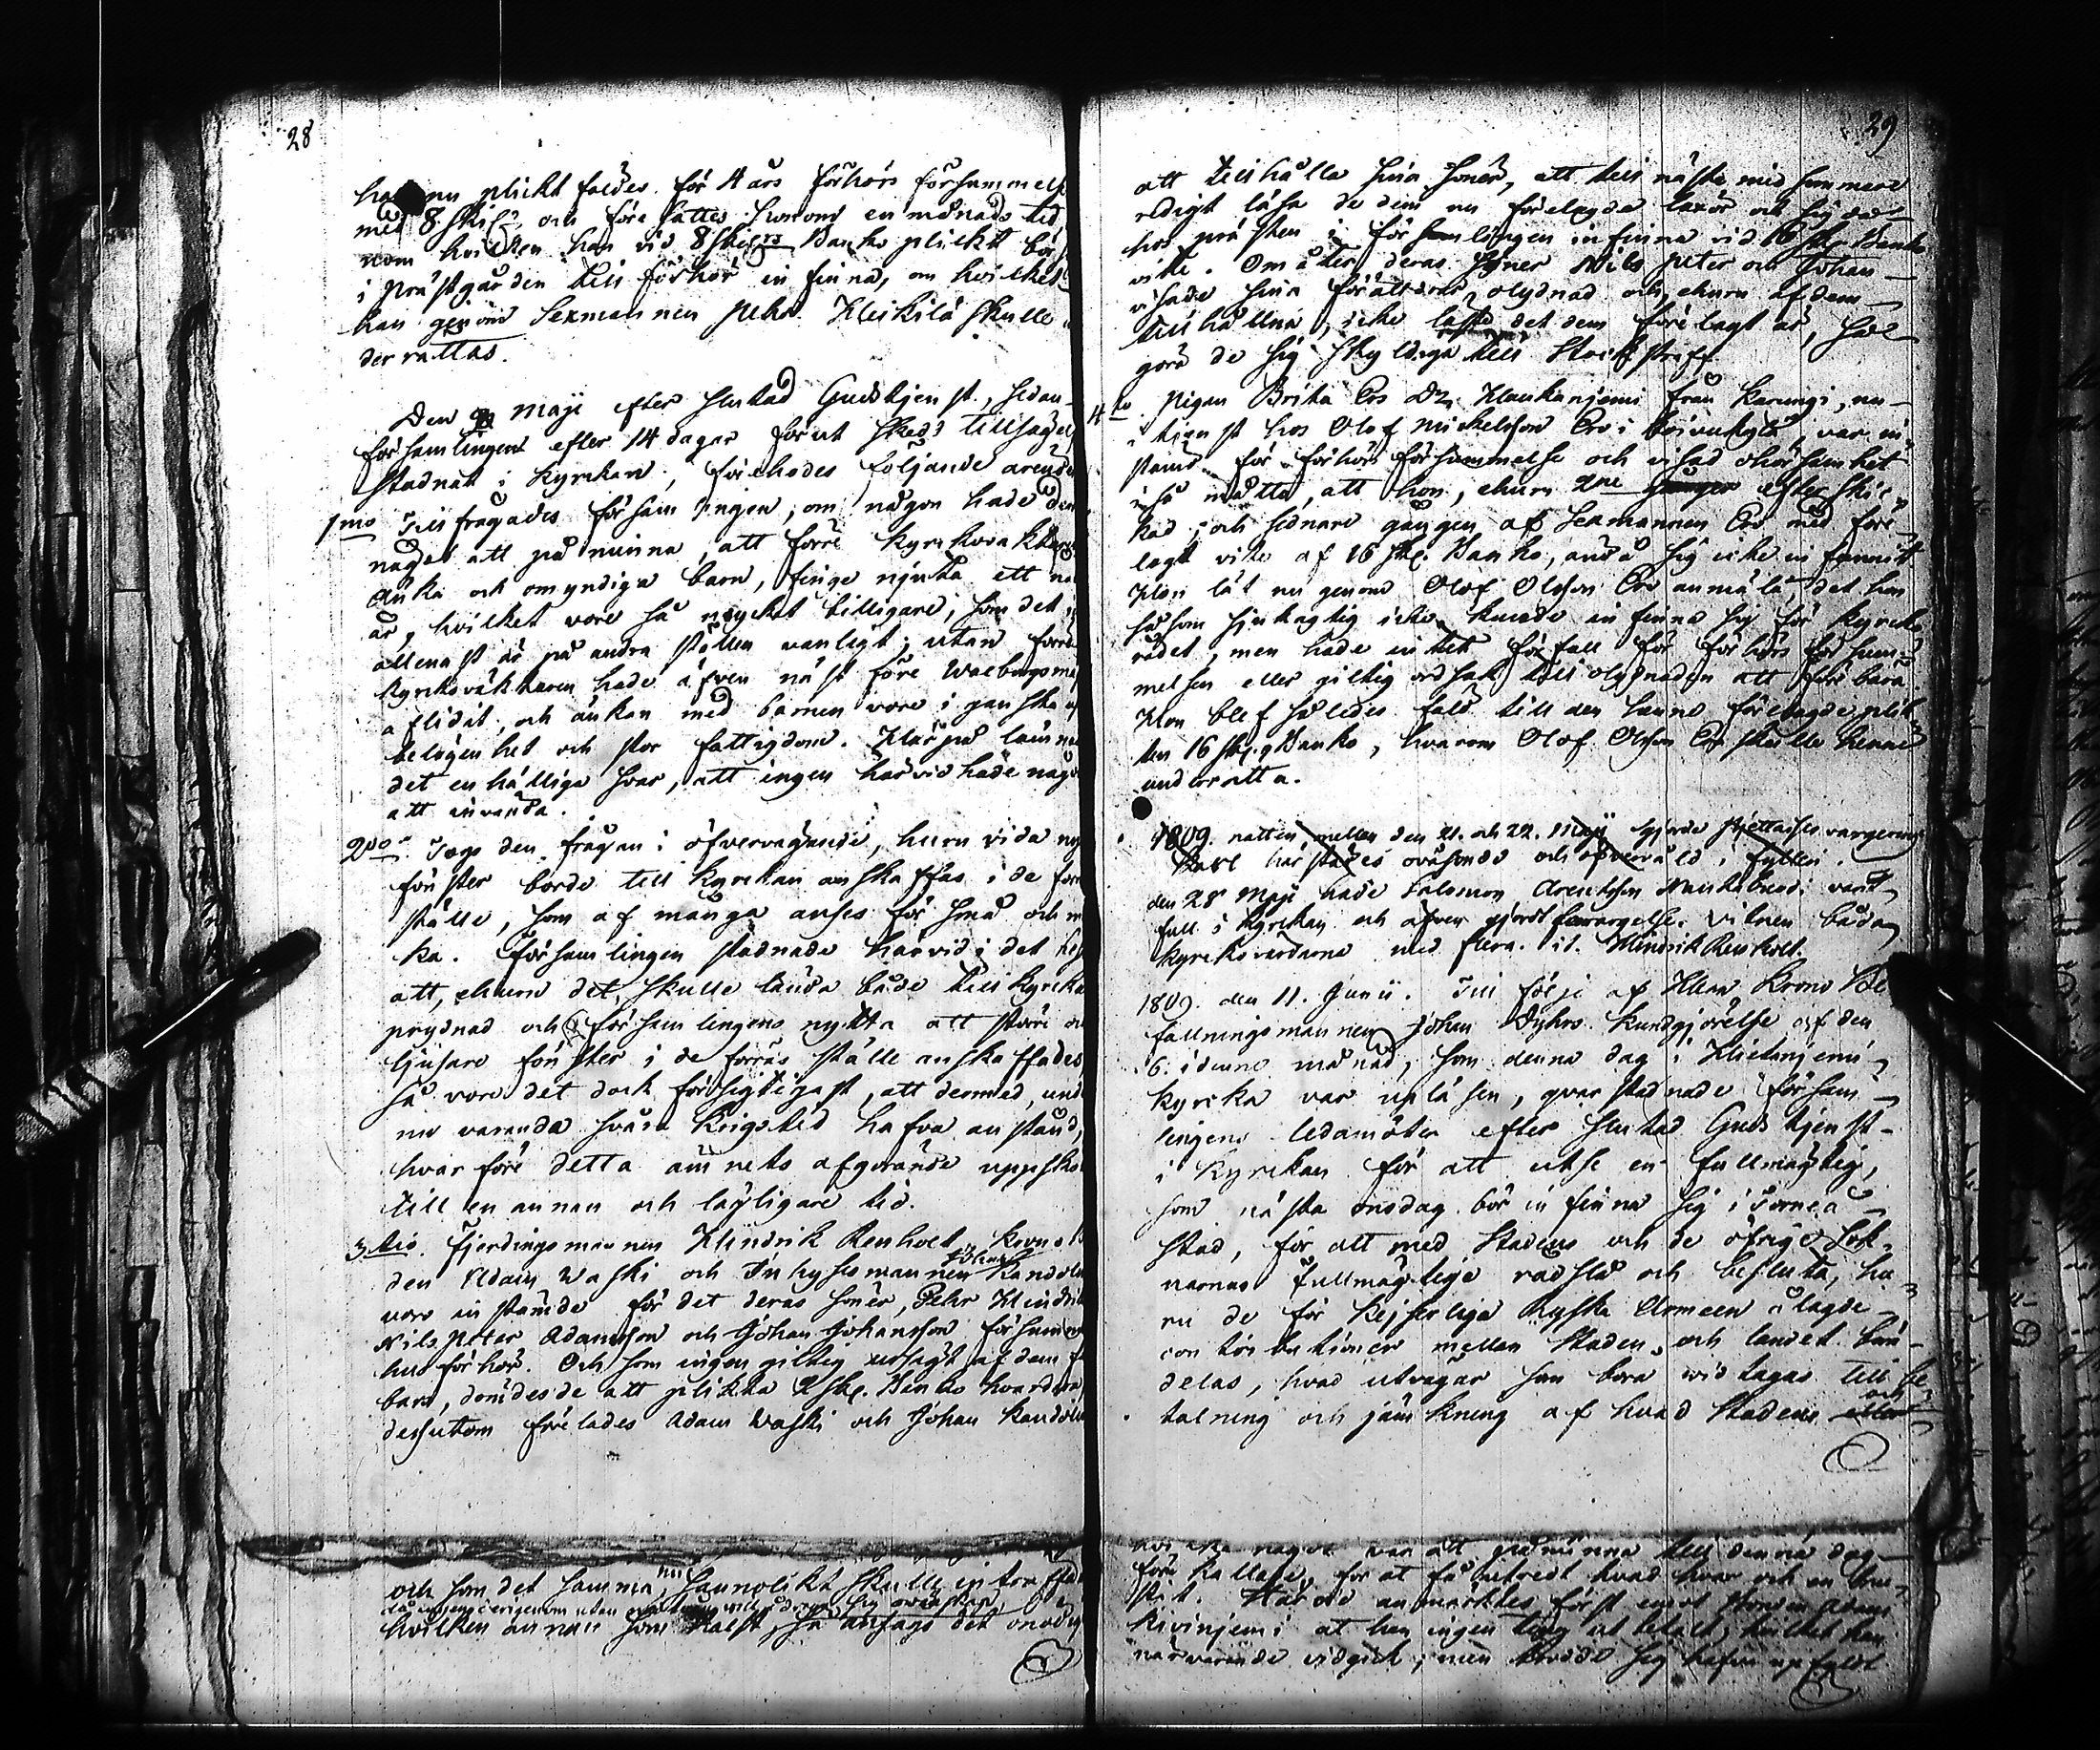 28
nu plickt fäldes för 4 års förhörs försummelse
med 8 skil. och före sattes honom en månads tid
inom hvilken han vid 8 skil. Banko plickt bör
i prästgården till förhör in finna, om hvilket
han genom Sexmannen Pehr Heikilä skulle un
derrättas.
Den Maji efter slutad Gudstjenst, sedan
församlingen efter 14 dagar förut skedd tillsägelse
stadnat i Kyrckan, förehades följande ärende
1mo Tillfrågades församlingen, om någon hade
något att på minna, att förre kyrckovaktarens
Änka och omyndiga barn, finge njuta ett
år, hvilket vore så mycket billigare, som det
allenast är på andra ställen vanligt, utan förre
Kyrckoväktaren hade äfven näst före Walborgsmässa
aflidit, och änkan med barnen vore i ganska
belägenhet och stor fattigdom. Härpå lämnades
det enhälliga svar, att ingen härvid hade något
att invända.
2do Togs den frågan i öfvervägande, huru vida nya
fönster borde till Kyrckan anskaffas i de förra
ställe, som af många anses för små och
ka. Församlingen stadnade härvid i det
att, ehuru det skulle lända både till Kyrckans
prydnad och församlingens nytta att större och
ljusare fönster i de förras ställe anskaffades
så vore det dock försigtigast, att dermed, under
nu varande svåra Krigstid hafva anstånd,
hvarföre detta ämnets afgörande uppskots
till en annan och lägligare tid.
3tio Fjerdingsmannen Hindrik Renholt, Krono B
den Adam Waski och Inhysesmannen Johan Kandola
voro instämde för det deras söner, Pehr Hindriks
Nils Peter Adamsson och Johan Johansson försummat
husförhör. Och som ingen giltig ursägt af dem
bars, dömdes de att plikta 8 sk. Banko hvardera
dessutom förelades Adam Waski och Johan Kandola
och som det samma nu sannolikt skulle inträffa
hvilken annan som hälst, så ansågs det onödig
29
att tillhålla sina söner, att till nästa mid sommare
redigt läsa de dem nu förelagde läxor och sig der
hos prästen i församlingen infinna vid 16 sk. Banko
vite. Om åter deras söner Nils Peter och Johan
visade sina föräldrar olydnad och ehuru af dem
tillhållna, icke läste det dem förelagt är, så
göra de sig skyldiga till Stockstraff.
4to Pigan Brita Ers Dr. Haukanjemi från Karungi, nu
i tjenst hos Olof Mickelsson Ero i Koivukylä, var in
stämd för förhörs försummelse och visad ohörsamhet
i så måtto, att hon, ehuru 2ne gånger efterskic
kad, och sednare gången af Sexmannen Ero med före
lagt vite af 16 sk. Banko, ändå sig icke infunnit
Hon lät nu genom Olof Olsson Ero anmäla, det hon
såsom sjukagtig icke kunde infinna sig för Kyrcko
rådet, men hade intet förfall för förhörs försum
melsen eller giltig orsak till olydnaden att förebära
Hon blef således fäld till den henne förelagde plik
ten 16 sk. Banko, hvarom Olof Olsson Ero skulle henne
underrätta.
1809. natten mellan den 21. och 22. Maji gjorde
Karl här städes oväsende och öfvervåld i fylleri.
den 28 Maji hade Salomon Arentsson Nankabuodi varit
full i Kyrckan och äfven gjort förargelse. Vitnen båda
Kyrckovärdarna med flera. it. Hindrik Renholt.
1809. den 11. Junii. Till följe af Herr Krono Be
fallningsmannen Johan Dyhrs kundgjörelse af den
6. i denne månad, som denna dag i Hietanjemi
Kyrcka var uplåsen, qvar stadnade försam
lingens ledamöter efter slutad Gudstjenst
i Kyrckan för att utse en fullmägtig,
som nästa onsdag bör infinna sig i Torneå
Stad, för att med Stadens och de öfrige Sok
narnas fullmägtige rådslå och besluta, hu
ru de för Kejserliga Ryska Armeen ålagde
contributioner mellan Staden och landet böra
delas, hvad utvägar som böra vidtagas till be
talning och jämkning af hvad Staden och
något var att påminna till denna dag
före kallade, för at få utredt hvad hvar och en
Härvid anmärktes först emot Adam
Kivinjemi at han ingen ting ut betalt, hvilket han
närvarande vidgick, men trodde sig hafva upfylt